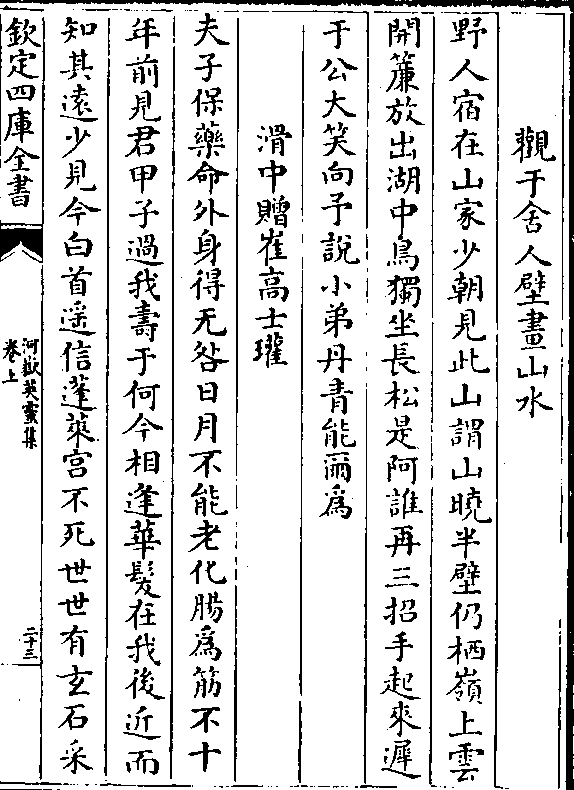 觀于舍人壁畫山水
野人宿在山家少朝見此山謂山曉半壁仍栖嶺上雲
開簾放出湖中鳥獨坐長松是阿誰再三招手起來遲
于公大笑向予說小弟丹青能爾為
滑中贈崔高士瓘
夫子保藥命外身得无咎日月不能老化腸為筋不十
年前見君甲子過我壽于何今相逢華髮在我後近而
知其遠少見今白首遥信蓬萊宫不死世世有玄石采
欽定四庫全書
河嶽英靈集
卷上
二十三